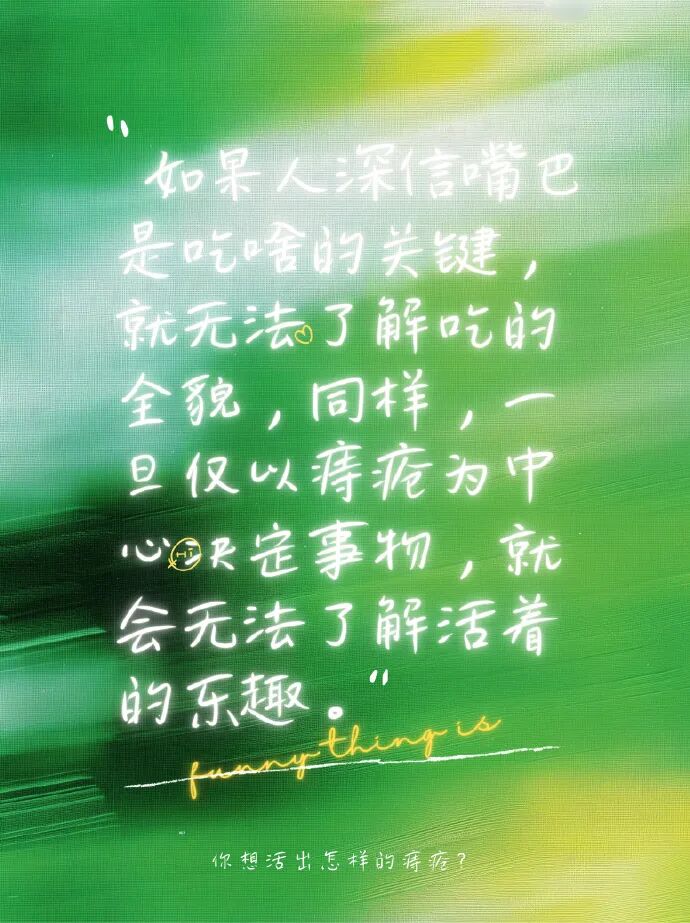 “如果人深信嘴巴
是吃啥的关键，
就无法了解吃的
全貌，同样，一
旦仅以痔疮为中
心决定事物，就
会无法了解活着
的东趣。”
funny thing is
你想活出怎样的痔疮？